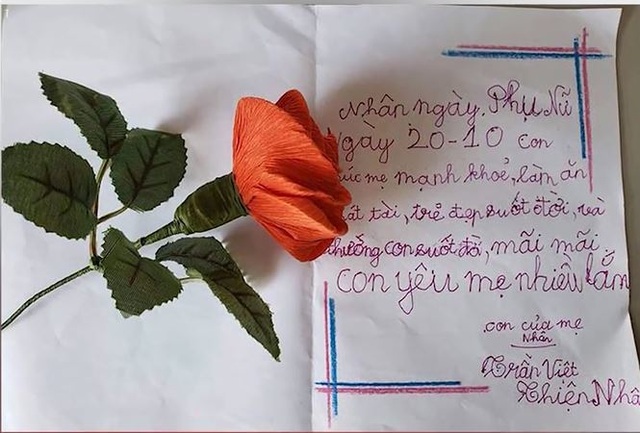 Nhân ngày. Phụ Nữ
Ngày 20-10 con
mẹ mạnh khoẻ, làm ăn
tài, trẻ đẹp suốt đời, và
thưởng con suốt đời, mãi mãi.
Con yêu mẹ nhiều lắm
con của mẹ
Nhân
Trần Việt
Thiện Nhâ